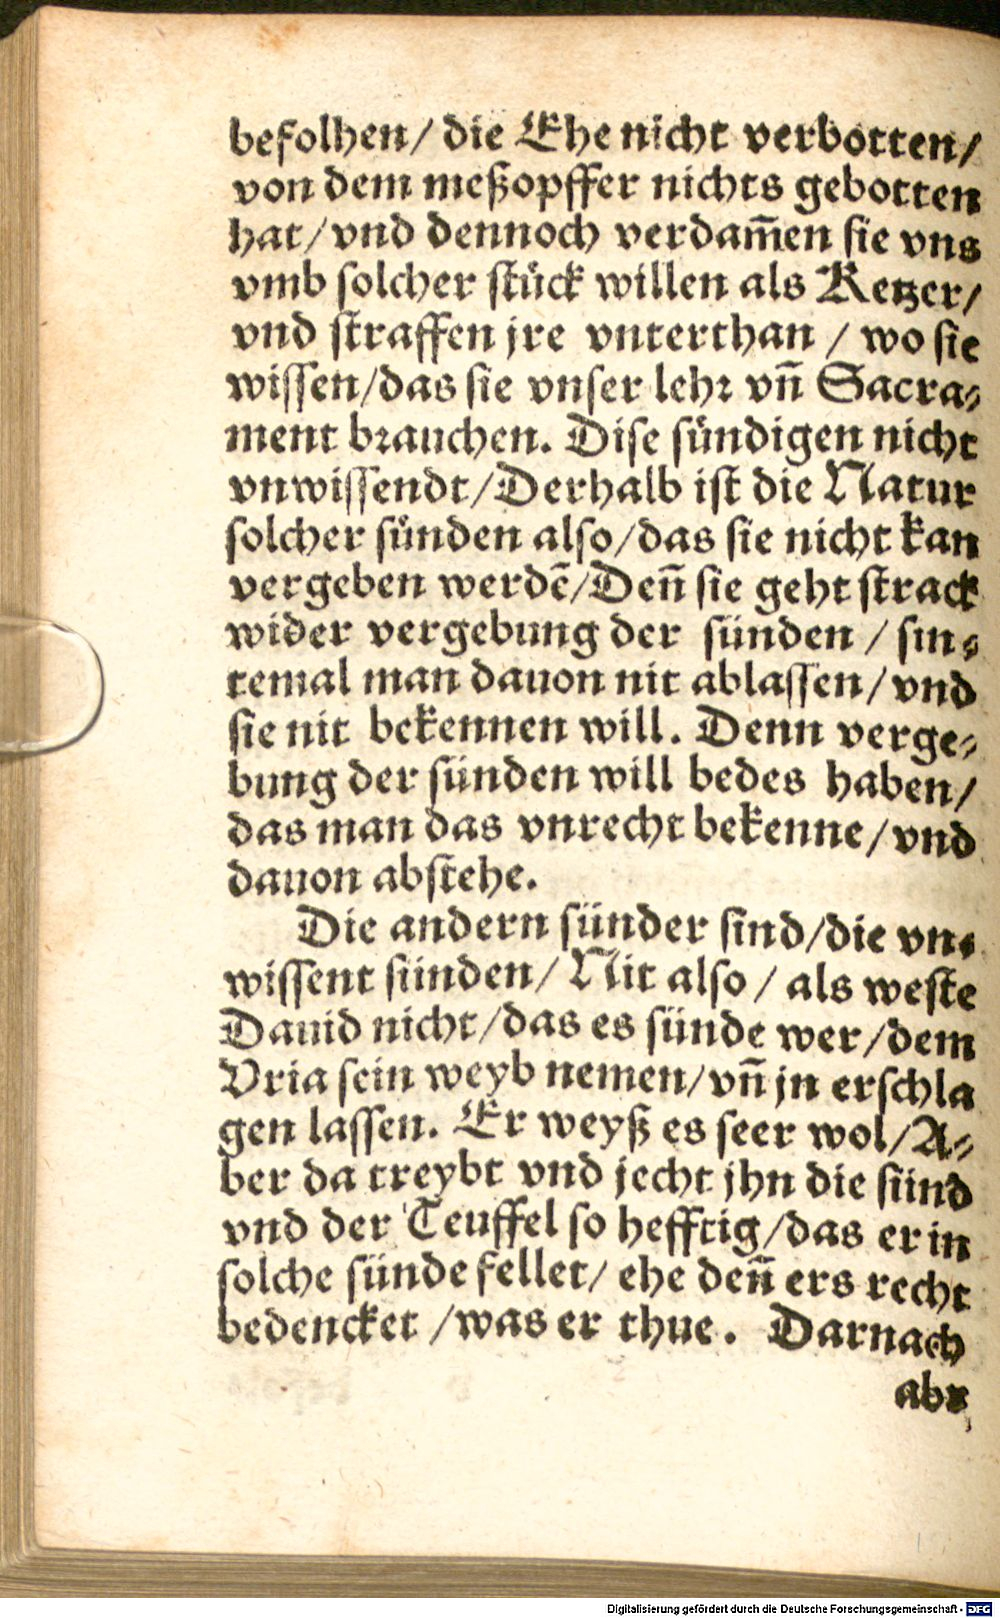 befolhen/ die Ehe nicht verbotten/
von dem meßopffer nichts gebotten
hat/vnd dennoch verdam̃en sie vns
vmb solcher stück willen als Ketzer/
vnd straffen jre vnterthan / wo sie
wissen/das sie vnser lehr vn̄ Sacra⸗
ment brauchen. Dise sündigen nicht
vnwissendt/Derhalb ist die Natur
solcher sünden also/das sie nicht kan
vergeben werdē/Den̄ sie geht strack
wider vergebung der sünden / sin⸗
temal man dauon nit ablassen/ vnd
sie nit bekennen will. Denn verge⸗
bung der sünden will bedes haben/
das man das vnrecht bekenne/vnd
dauon abstehe.
Die andern sünder sind/die vn⸗
wissent sünden/ Nit also / als weste
Dauid nicht/das es sünde wer/dem
Vria sein weyb nemen/vn̄ jn erschla
gen lassen. Er weyß es seer wol/A⸗
ber da treybt vnd jecht jhn die sünd
vnd der Teuffel so hefftig/das er in
solche sünde fellet/ ehe den̄ ers recht
bedencket /was er thue. Darnach
abr
Digitalisierung gefördert durch die Deutsche Forschungsgemeinschaft - DFG